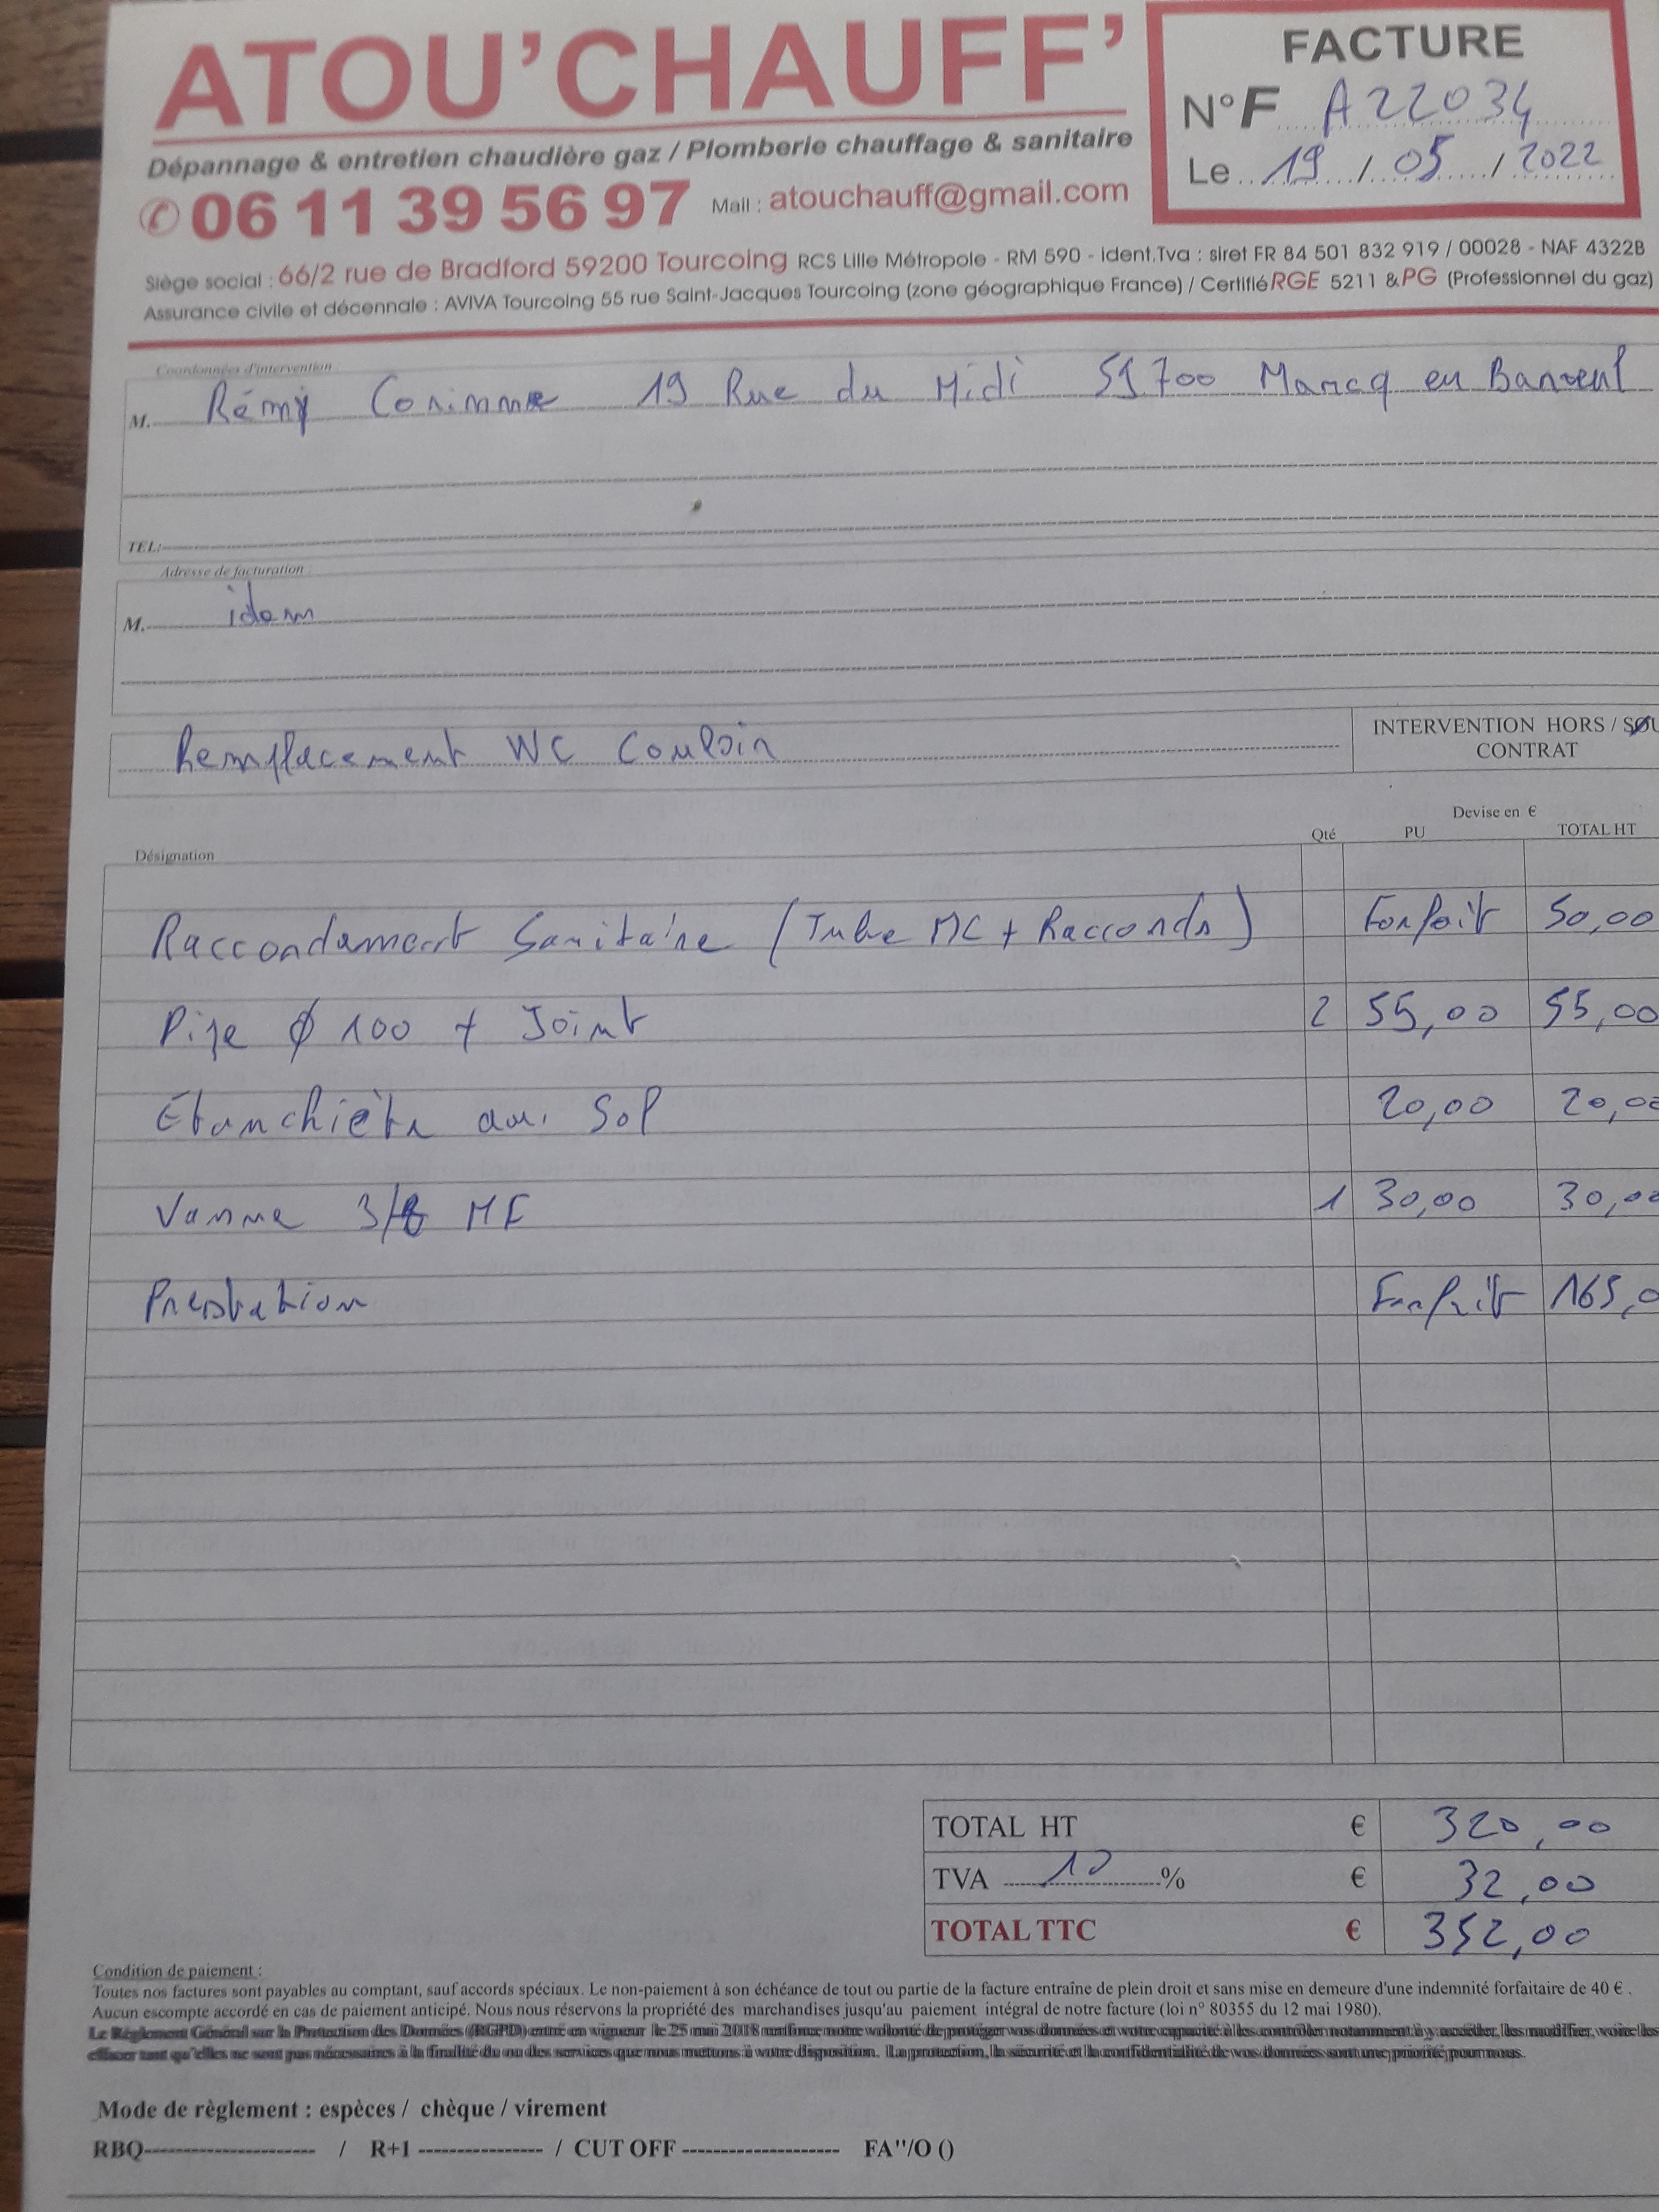 ATOU'CHAUFF'
Dépannage & entretien chaudière gaz / Plomberie chauffage & sanitaire
✆ 06 11 39 56 97 Mail : atouchauff@gmail.com
FACTURE
N°F A22034
Le 19 / 05 / 2022
Siège social : 66/2 rue de Bradford 59200 Tourcoing RCS Lille Métropole - RM 590 - Ident.Tva : siret FR 84 501 832 919 / 00028 - NAF 4322B
Assurance civile et décennale : AVIVA Tourcoing 55 rue Saint-Jacques Tourcoing (zone géographique France) / Certifié RGE 5211 & PG (Professionnel du gaz)
Coordonnées d'intervention :
M. Rémy Corinne 19 Rue du Midi 59700 Marcq en Baroeul
TEL:
Adresse de facturation :
M. idem
Remplacement WC Couloir
INTERVENTION HORS / SOU
CONTRAT
Devise en €
Désignation Qté PU TOTAL HT
Raccordement Sanitaire (Tube MC + Raccords) Forfait 50,00
Pipe ø 100 + Joint 2 55,00 55,00
Etanchiète au Sol 20,00 20,00
Vanne 3/8 MF 1 30,00 30,00
Prestation Forfait 165,0
TOTAL HT € 320,00
TVA 10 % € 32,00
TOTAL TTC € 352,00
Condition de paiement :
Toutes nos factures sont payables au comptant, sauf accords spéciaux. Le non-paiement à son échéance de tout ou partie de la facture entraîne de plein droit et sans mise en demeure d'une indemnité forfaitaire de 40 € .
Aucun escompte accordé en cas de paiement anticipé. Nous nous réservons la propriété des marchandises jusqu'au paiement intégral de notre facture (loi n° 80355 du 12 mai 1980).
Le Règlement Général sur la Protection des Données (RGPD) entré en vigueur le 25 mai 2018 renforce notre volonté de protéger vos données et votre capacité à les contrôler notamment à y accéder, les modifier, voire les
effacer tant qu'elles ne sont pas nécessaires à la finalité du ou des services que nous mettons à votre disposition. La protection, la sécurité et la confidentialité de vos données sont une priorité pour nous.
Mode de règlement : espèces / chèque / virement
RBQ / R+1 / CUT OFF FA"/O ()